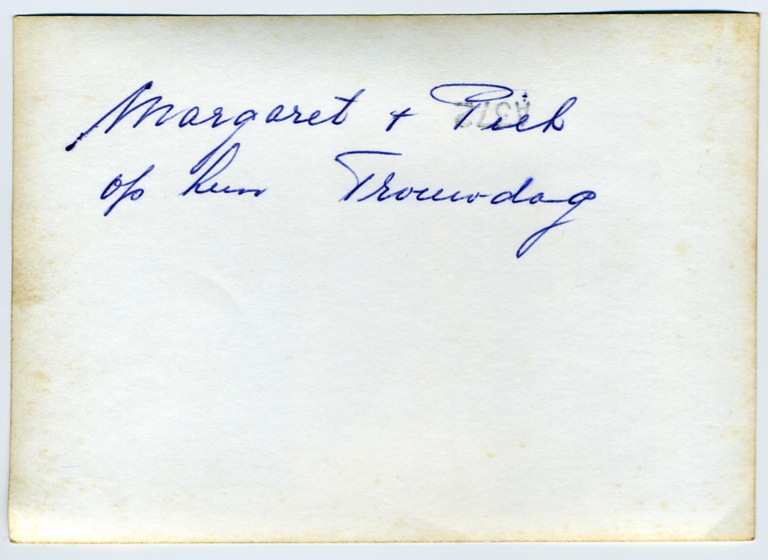 Margaret + Piek
op hun Trouwdag
A372